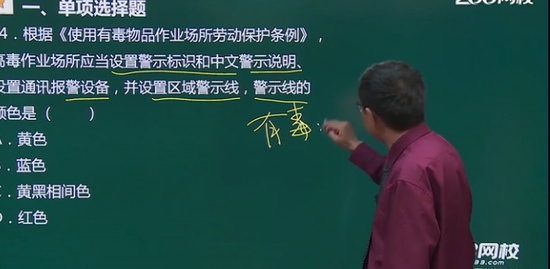 一、单项选择题
4．根据《使用有毒物品作业场所劳动保护条例》，
高毒作业场所应当设置警示标识和中文警示说明、
设置通讯报警设备，并设置区域警示线，警示线的
颜色是（　　）
A．黄色
B．蓝色
C．黄黑相间色
D．红色
有毒：
网校
网校